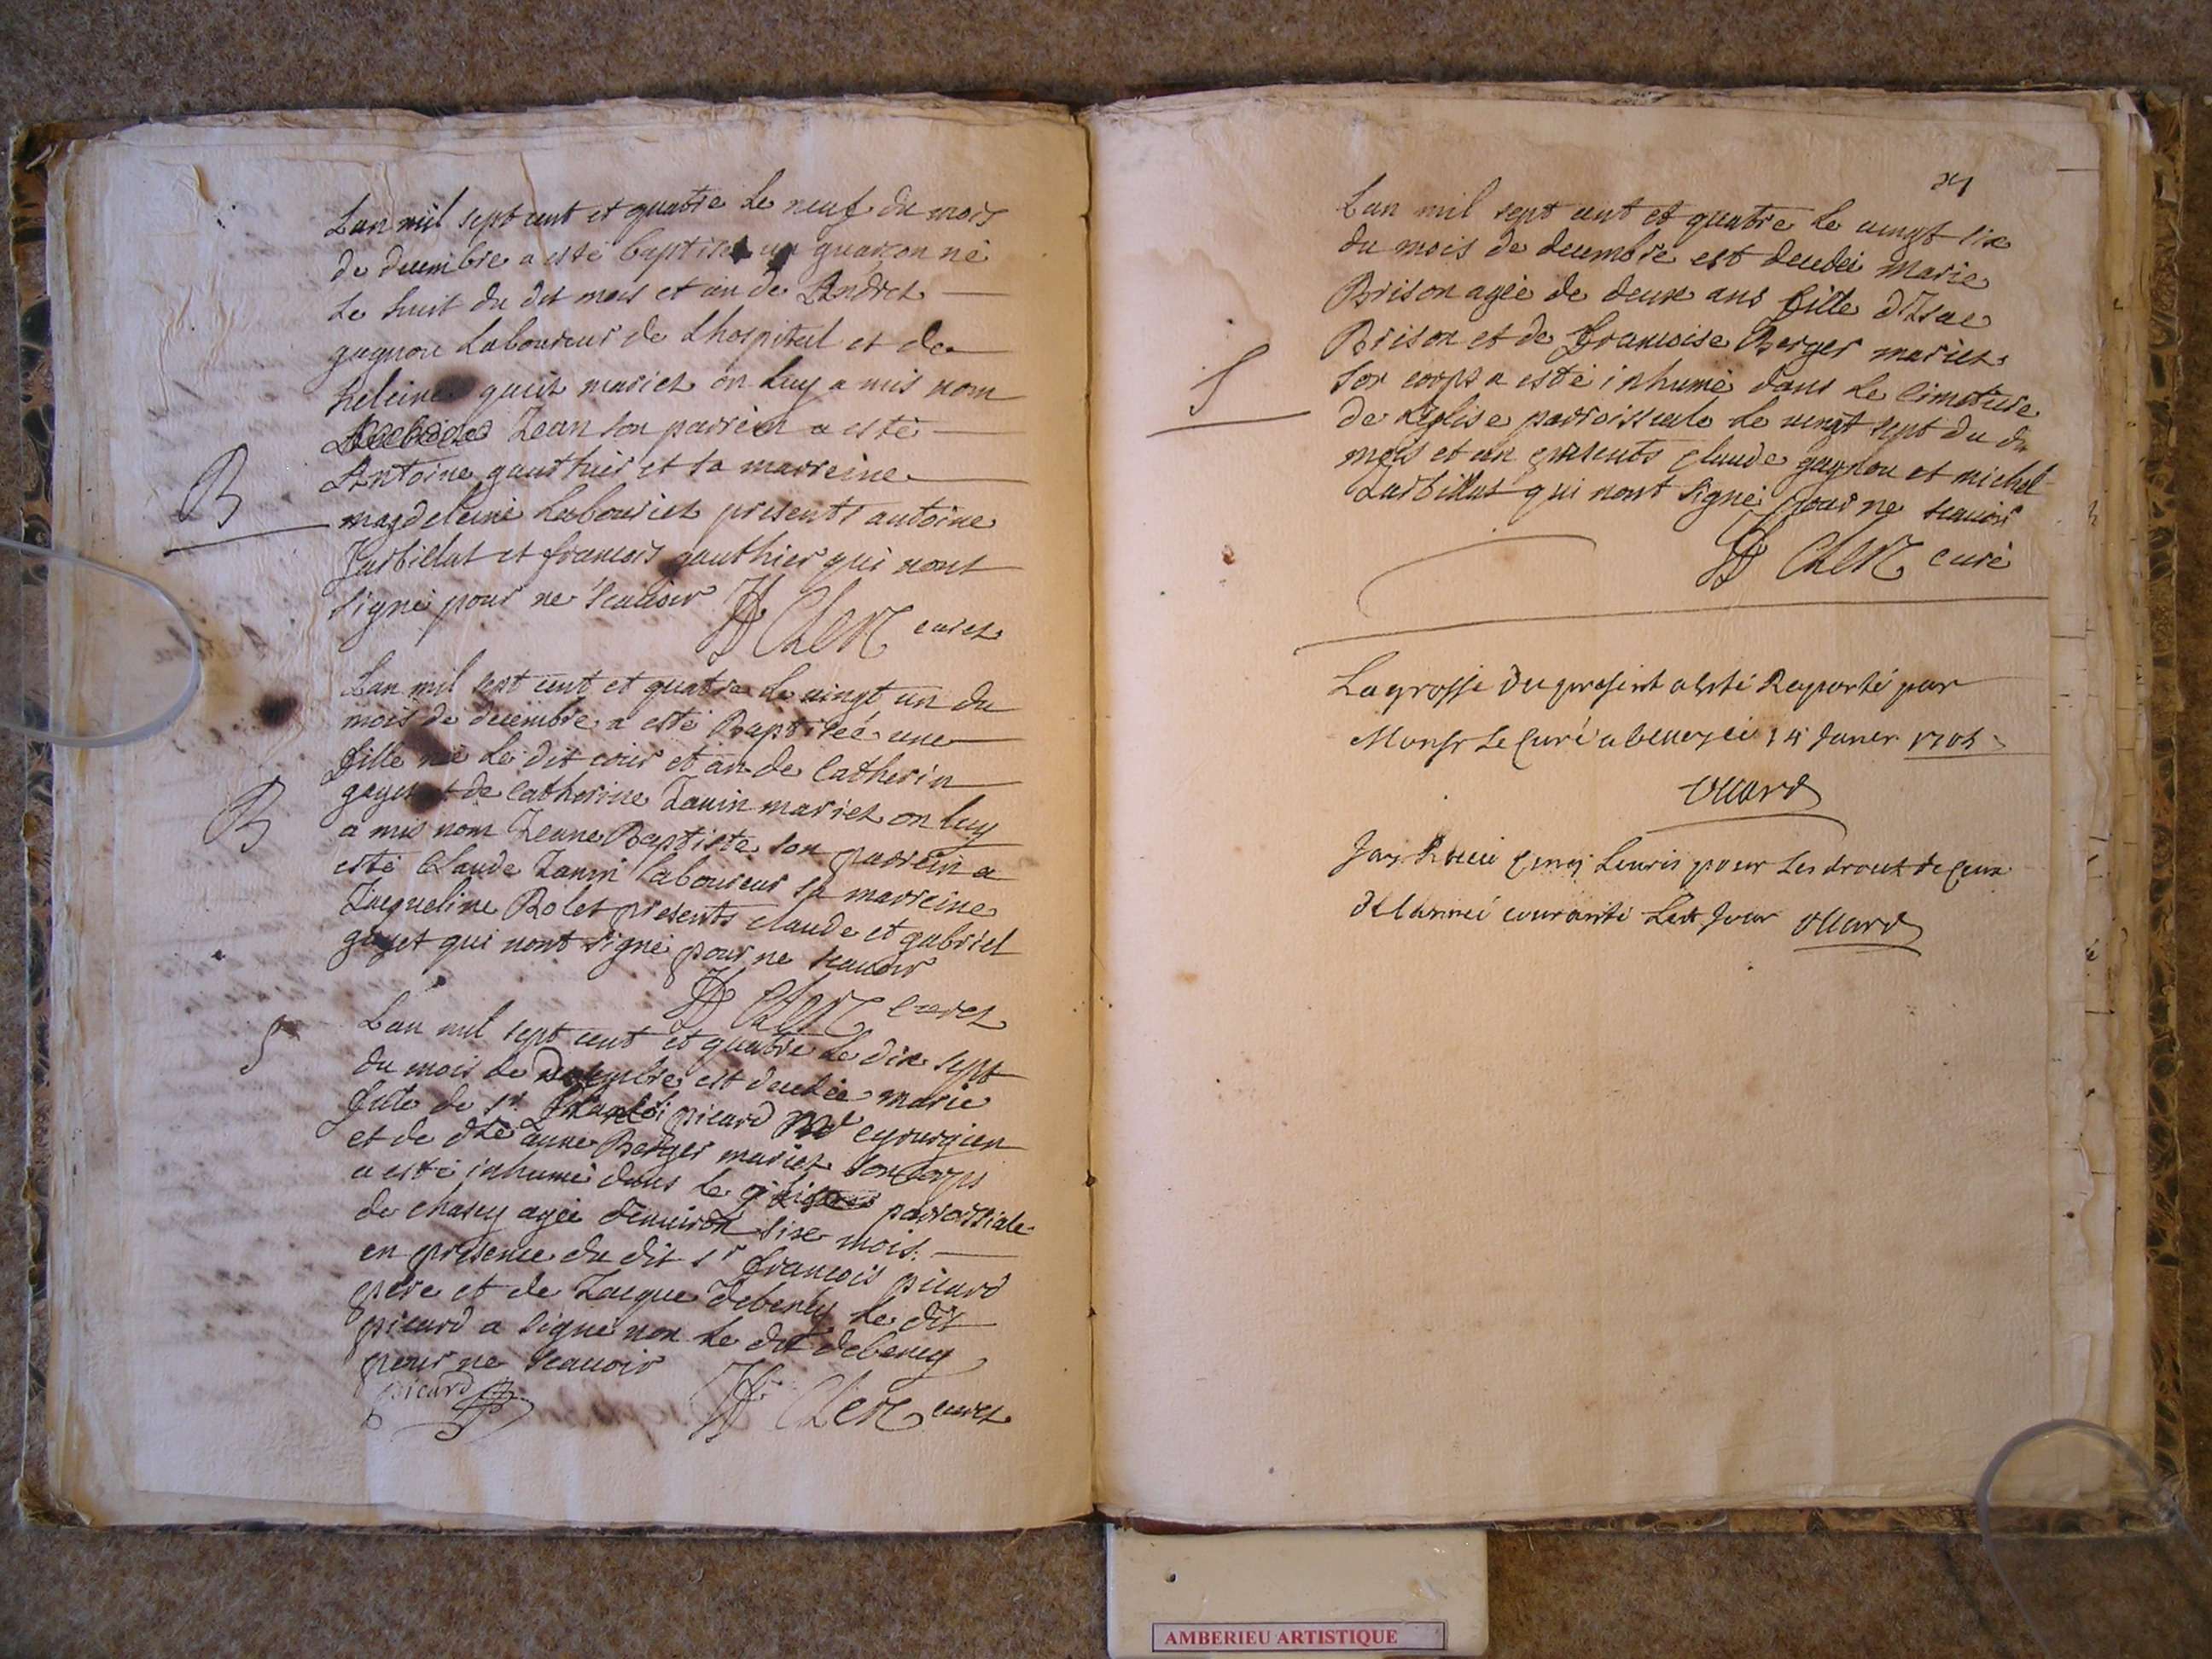 Lan mil sept cent et quatre le neuf du mois
de decembre a esté baptisé un guarcon né
le huit du dit mois et an de Andrez
gagnon laboureur de Lhospital et de
heleine mariez on luy a mis nom
Jean son parrein a esté
Antoine gauthier et sa marreine
B
magdeleine Labouriez presents antoine
Jarbillat et francois gauthier qui nont
signé pour ne scauoir
Clerc curez
Lan mil sept cent et quatre le uingt un du
mois de decembre a esté Baptiseé une
fille née le dit iour et an de Catherin
gayet et de Catherine Janin mariez on luy
B
a mis nom Jeanne Baptiste son parrein a
esté Claude Janin laboureur sa marreine
Jacqueline Rolet presents claude et gabriel
gayet qui nont signé pour ne scauoir
Clerc Curez
S
Lan mil sept cent et quatre le dix sept
du mois de est decedée marie
fille de sr. picard Me cyrurgien
et de dlle anne Berger mariez son corps
a esté inhumé dans le parroissiale
de chasey agée denuiron six mois.
en presence du dit sr francois picard
pere et de Jacque debeney le dit
picard a signe non le dit debeney
pour ne scauoir
picard
Clerc curez
Lan mil sept cent et quatre le uingt six
du mois de decembre est decedeé Marie
Brison ageé de deux ans fille dIsac
Brison et de francoise Berger mariez
S
son corps a esté inhumé dans le cimetiere
de leglise parroissiale le uingt sept du d
mois et an presents claude gagnon et michel
Jarbillat qui nont signé pour ne scauoir
Clerc curé
La grosse du present a esté Raporté par
Monsr Le Curé a 14 Januer 1705
Jay Receu cinq pour les droits de ceux
de lanneé courante Led Jour
AMBERIEU ARTISTIQUE